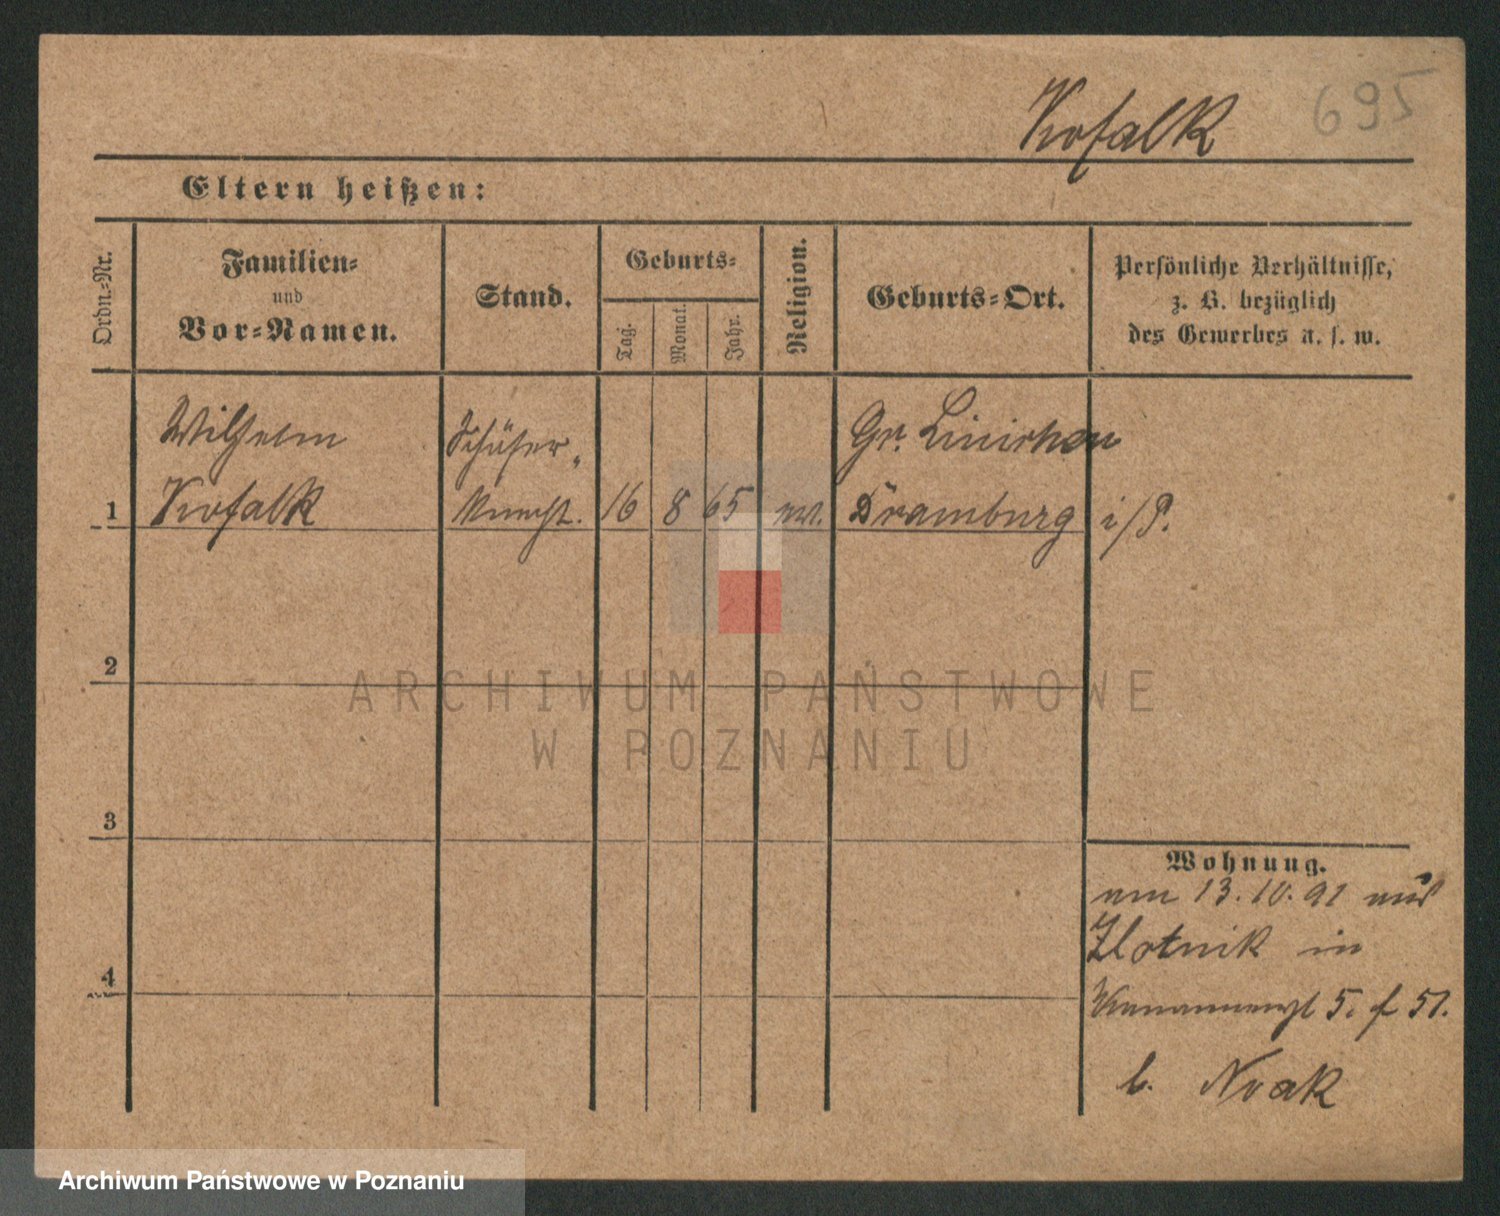 Krofalk 695
Eltern heißen:
Ordn.-Nr.
Familien-
und
Vor-Namen.
Stand.
Geburts-
Tag.
Monat.
Jahr.
Religion.
Geburts-Ort.
Persönliche Verhältnisse,
z. B. bezüglich
des Gewerbes u. s. w.
Wilhelm Schäfer- Gr. Linichen
1 Krofalk Knecht. 16 8 65 ev. Dramburg i/P.
2
ARCHIWUM PAŃSTWOWE
W POZNANIU
3
Wohnung.
am 13.10.91 aus
Zlotnik in
5. f 51.
4
b. Noak
Archiwum Państwowe w Poznaniu